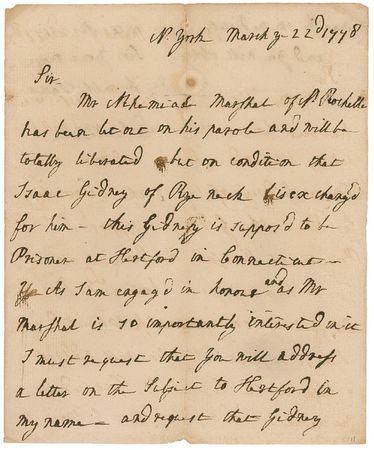 N. York March y 22d 1778
Sir
Mr Nhemiah Marshal of N. Rochelle
has been let out on his parole and will be
totally liberated but on condition that
Isaac Gidney of Rye neck is exchang'd
for him – this Gidney is suppos'd to be
Prisoner at Hertford in Connecticut –
As I am engag'd in honour and as Mr
Marshal is so importantly interested in it
I must request that You will address
a letter on the Subject to Hertford in
my name – and request that Gidney